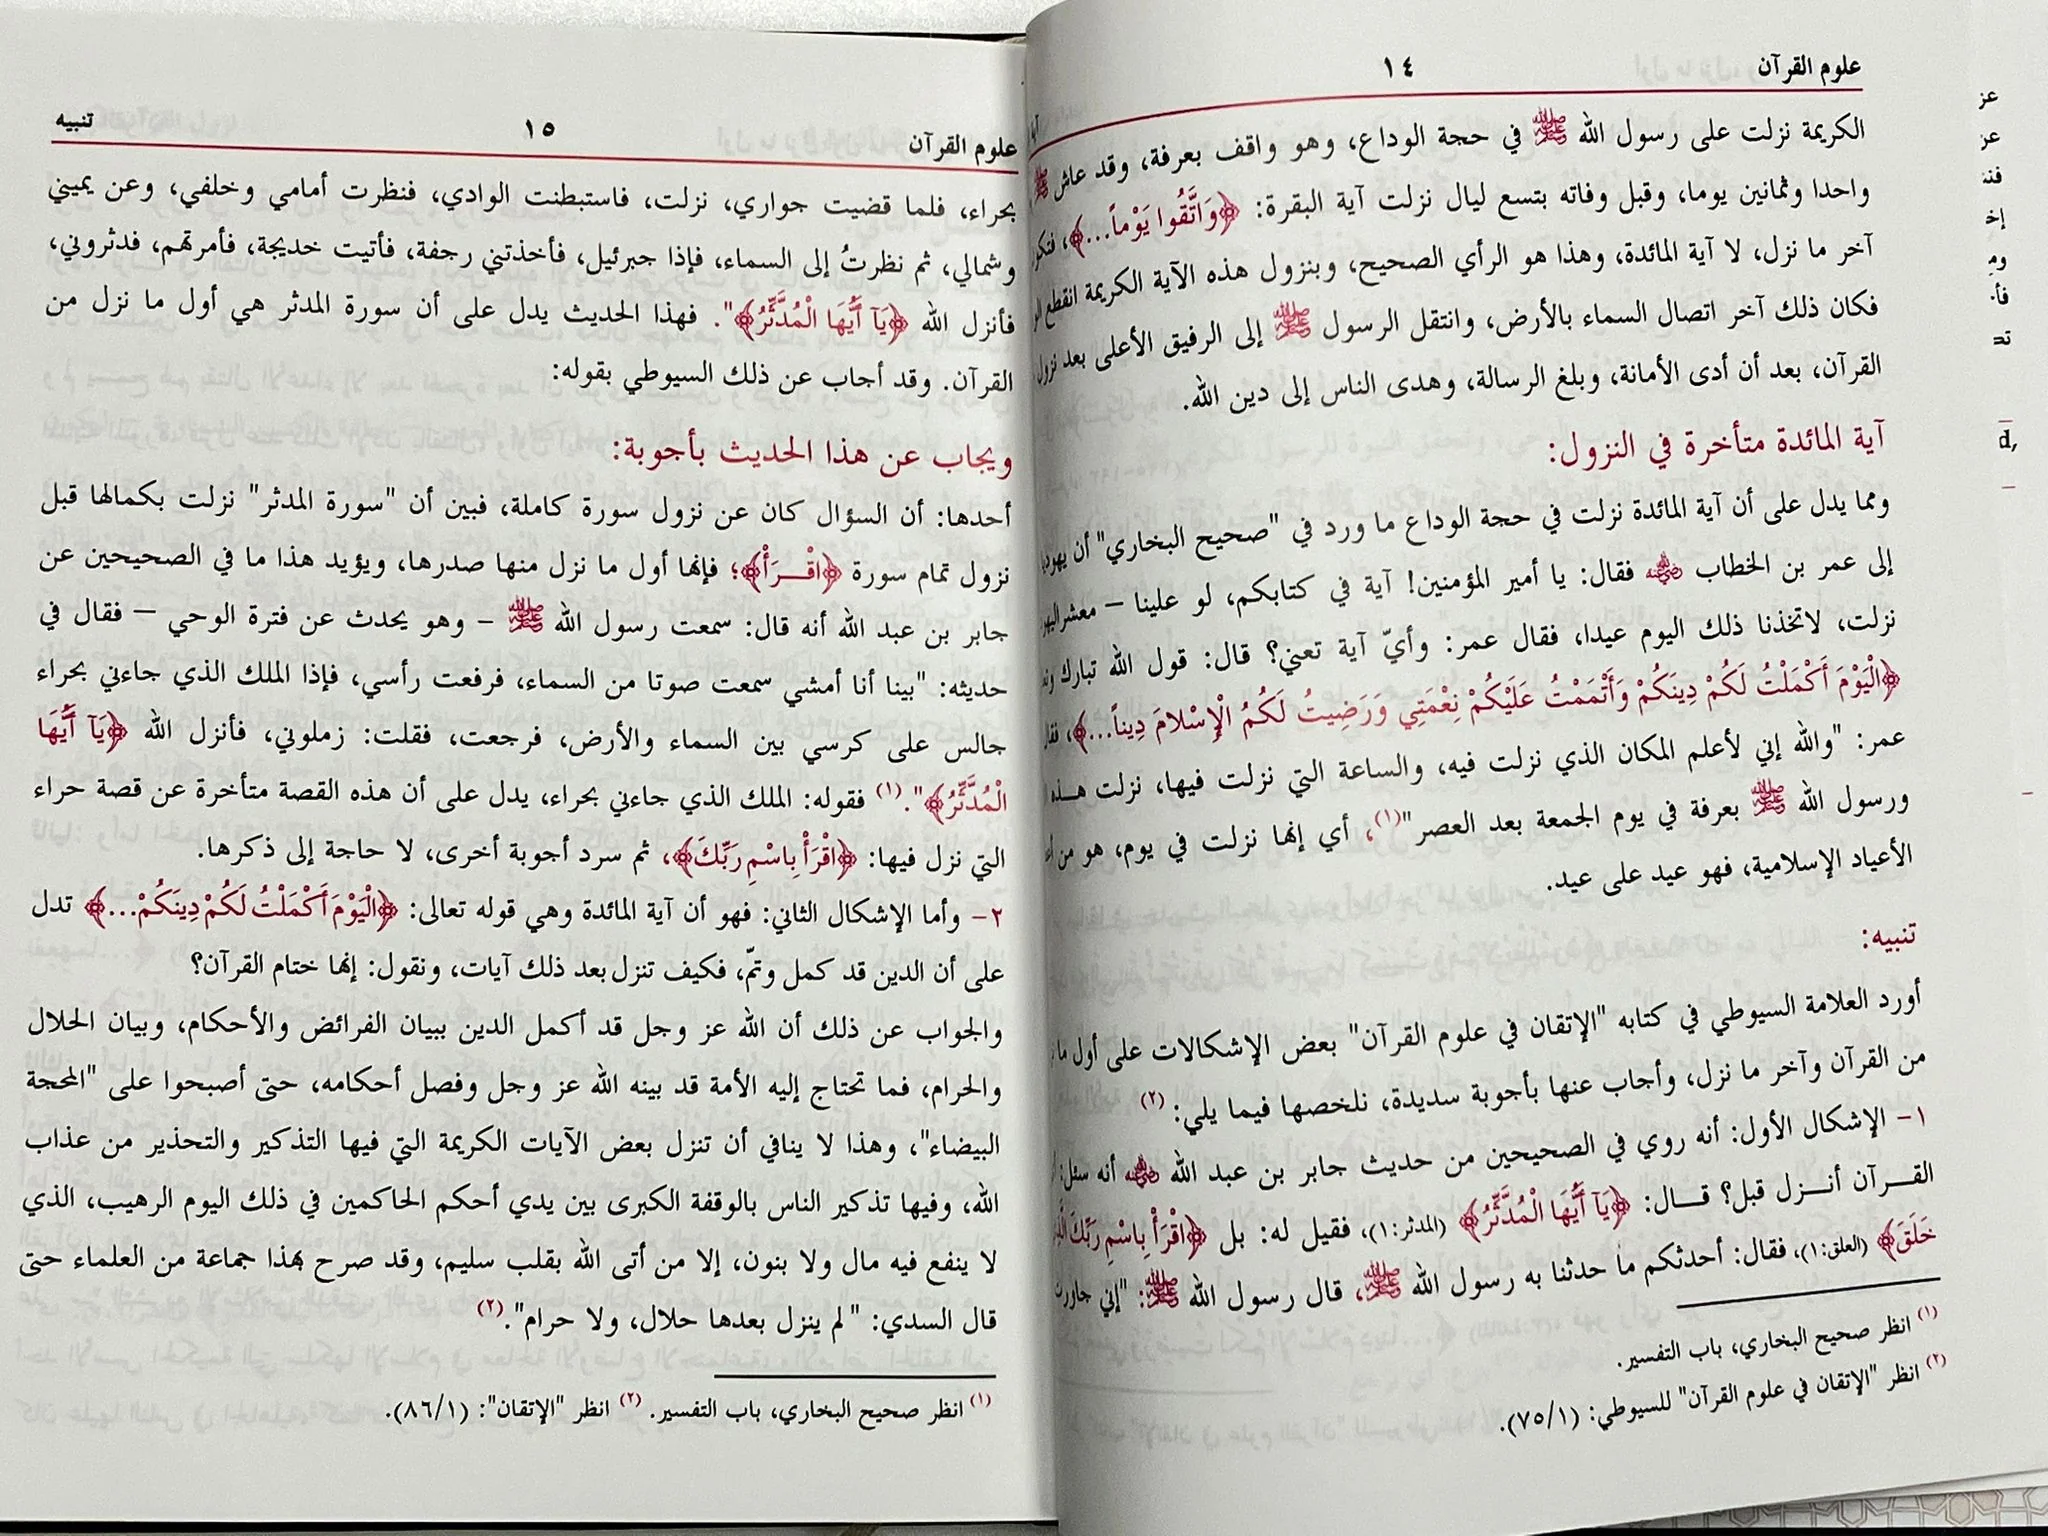 علوم القرآن ١٤
الكريمة نزلت على رسول الله ﷺ في حجة الوداع، وهو واقف بعرفة، وقد عاش ﷺ
واحدا وثمانين يوما، وقبل وفاته بتسع ليال نزلت آية البقرة: ﴿وَاتَّقُوا يَوْماً...﴾،
آخر ما نزل، لا آية المائدة، وهذا هو الرأي الصحيح، وبنزول هذه الآية الكريمة انقطع
فكان ذلك آخر اتصال السماء بالأرض، وانتقل الرسول ﷺ إلى الرفيق الأعلى بعد نزول
القرآن، بعد أن أدى الأمانة، وبلغ الرسالة، وهدى الناس إلى دين الله.
آية المائدة متأخرة في النزول:
ومما يدل على أن آية المائدة نزلت في حجة الوداع ما ورد في "صحيح البخاري" أن يهوديا
إلى عمر بن الخطاب ﵁ فقال: يا أمير المؤمنين! آية في كتابكم، لو علينا – معشر اليهود
نزلت، لاتخذنا ذلك اليوم عيدا، فقال عمر: وأيّ آية تعني؟ قال: قول الله تبارك
﴿الْيَوْمَ أَكْمَلْتُ لَكُمْ دِينَكُمْ وَأَتْمَمْتُ عَلَيْكُمْ نِعْمَتِي وَرَضِيتُ لَكُمُ الْإِسْلامَ دِيناً...﴾، فقال
عمر: "والله إني لأعلم المكان الذي نزلت فيه، والساعة التي نزلت فيها، نزلت هـذه
ورسول الله ﷺ بعرفة في يوم الجمعة بعد العصر"(١)، أي إنها نزلت في يوم، هو من
الأعياد الإسلامية، فهو عيد على عيد.
تنبيه:
أورد العلامة السيوطي في كتابه "الإتقان في علوم القرآن" بعض الإشكالات على أول ما
من القرآن وآخر ما نزل، وأجاب عنها بأجوبة سديدة، نلخصها فيما يلي: (٢)
١- الإشكال الأول: أنه روي في الصحيحين من حديث جابر بن عبد الله ﵁ أنه سئل:
القـرآن أنـزل قبل؟ قـال: ﴿يَآ أَيُّهَا الْمُدَّثِّرُ﴾ (المدثر:١)، فقيل له: بل ﴿اقْرَأْ بِاسْمِ رَبِّكَ الَّذِي
خَلَقَ﴾ (العلق:١)، فقال: أحدثكم ما حدثنا به رسول الله ﷺ، قال رسول الله ﷺ: "إني جاورت
(١) انظر صحيح البخاري، باب التفسير.
(٢) انظر "الإتقان في علوم القرآن" للسيوطي: (٧٥/١).
علوم القرآن ١٥ تنبيه
بحراء، فلما قضيت جواري، نزلت، فاستبطنت الوادي، فنظرت أمامي وخلفي، وعن يميني
وشمالي، ثم نظرتُ إلى السماء، فإذا جبرئيل، فأخذتني رجفة، فأتيت خديجة، فأمرتهم، فدثروني،
فأنزل الله ﴿يَآ أَيُّهَا الْمُدَّثِّرُ﴾". فهذا الحديث يدل على أن سورة المدثر هي أول ما نزل من
القرآن. وقد أجاب عن ذلك السيوطي بقوله:
ويجاب عن هذا الحديث بأجوبة:
أحدها: أن السؤال كان عن نزول سورة كاملة، فبين أن "سورة المدثر" نزلت بكمالها قبل
نزول تمام سورة ﴿اقْـرَأْ﴾؛ فإنها أول ما نزل منها صدرها، ويؤيد هذا ما في الصحيحين عن
جابر بن عبد الله أنه قال: سمعت رسول الله ﷺ – وهو يحدث عن فترة الوحي – فقال في
حديثه: "بينا أنا أمشي سمعت صوتا من السماء، فرفعت رأسي، فإذا الملك الذي جاءني بحراء
جالس على كرسي بين السماء والأرض، فرجعت، فقلت: زملوني، فأنزل الله ﴿يَآ أَيُّهَا
الْمُدَّثِّرُ﴾".(١) فقوله: الملك الذي جاءني بحراء، يدل على أن هذه القصة متأخرة عن قصة حراء
التي نزل فيها: ﴿اقْرَأْ بِاسْمِ رَبِّكَ﴾، ثم سرد أجوبة أخرى، لا حاجة إلى ذكرها.
٢- وأما الإشكال الثاني: فهو أن آية المائدة وهي قوله تعالى: ﴿الْيَوْمَ أَكْمَلْتُ لَكُمْ دِينَكُمْ...﴾ تدل
على أن الدين قد كمل وتمّ، فكيف تنزل بعد ذلك آيات، ونقول: إنها ختام القرآن؟
والجواب عن ذلك أن الله عز وجل قد أكمل الدين ببيان الفرائض والأحكام، وبيان الحلال
والحرام، فما تحتاج إليه الأمة قد بينه الله عز وجل وفصل أحكامه، حتى أصبحوا على "المحجة
البيضاء"، وهذا لا ينافي أن تنزل بعض الآيات الكريمة التي فيها التذكير والتحذير من عذاب
الله، وفيها تذكير الناس بالوقفة الكبرى بين يدي أحكم الحاكمين في ذلك اليوم الرهيب، الذي
لا ينفع فيه مال ولا بنون، إلا من أتى الله بقلب سليم، وقد صرح بهذا جماعة من العلماء حتى
قال السدي: "لم ينزل بعدها حلال، ولا حرام".(٢)
(١) انظر صحيح البخاري، باب التفسير. (٢) انظر "الإتقان": (٨٦/١).